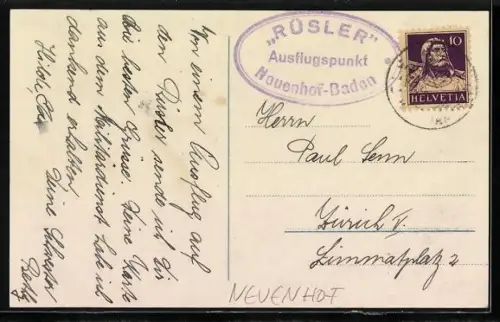 Von einem Ausflug auf
den Rüsler sende ich Dir
die besten Grüsse. Deine Karte
aus dem Militärdienst hab ich
dankend erhalten.
Deine Schwester
"RÜSLER"
Ausflugspunkt
Neuenhof-Baden
10
HELVETIA
Herrn
Paul Senn
Zürich V.
Limmatplatz 2
NEUENHOF